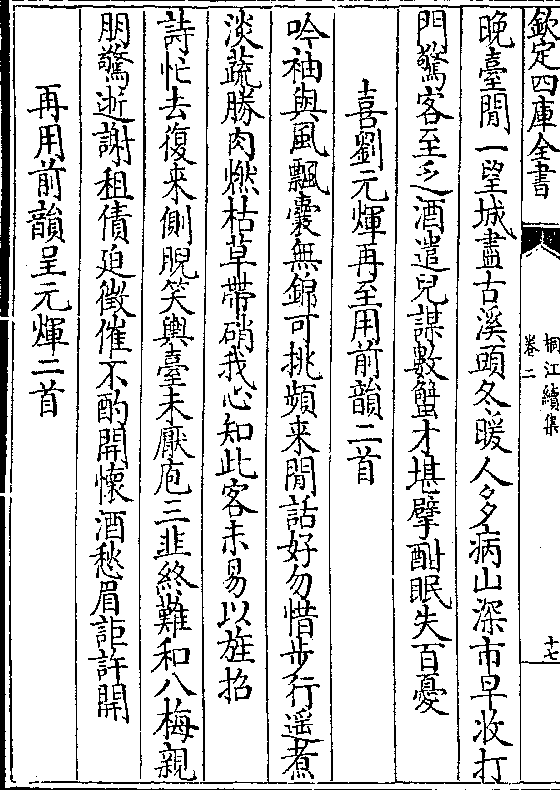 欽定四庫全書
桐江續集
卷二
十七
晚臺閒一望城盡古溪頭冬暖人多病山深市早收打
門驚客至乏酒遣兒謀數蟹才堪擘酣眠失百憂
喜劉元煇再至用前韻二首
吟袖與風飄囊無錦可挑頻来閒話好勿惜步行遥煮
淡蔬勝肉燃枯草帶硝我心知此客未易以旌招
詩忙去復来側睨笑輿臺未厭庖三韭終難和八梅親
朋驚逝謝租債迫徵催不酌開懷酒愁眉詎許開
再用前韻呈元煇二首